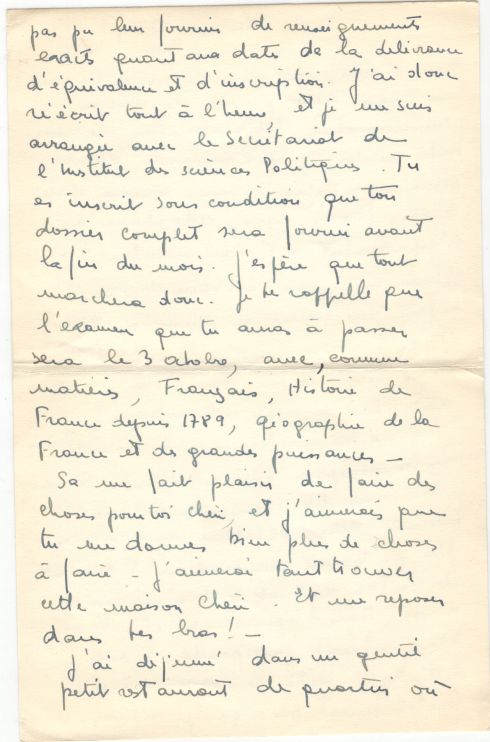 pas pu leur fournir de renseignements
exacts quant aux dates de la délivrance
d'équivalence et d'inscription. J'ai donc
réécrit tout à l'heure, et je me suis
arrangée avec le Secrétariat de
l'Institut des sciences Politiques. Tu
es inscrit sous condition que ton
dossier complet sera fourni avant
la fin du mois. J'espère que tout
marchera donc. Je te rappelle que
l'examen que tu auras à passer
sera le 3 octobre, avec, comme
matières, Français, Histoire de
France depuis 1789, géographie de la
France et des grandes puissances -
Sa me fait plaisir de faire des
choses pour toi chéri, et j'aimerais que
tu me donnes bien plus de choses
à faire - J'aimerai tant trouver
cette maison chéri. Et me reposer
dans tes bras! -
J'ai déjeuné dans un gentil
petit restaurant de quartier où